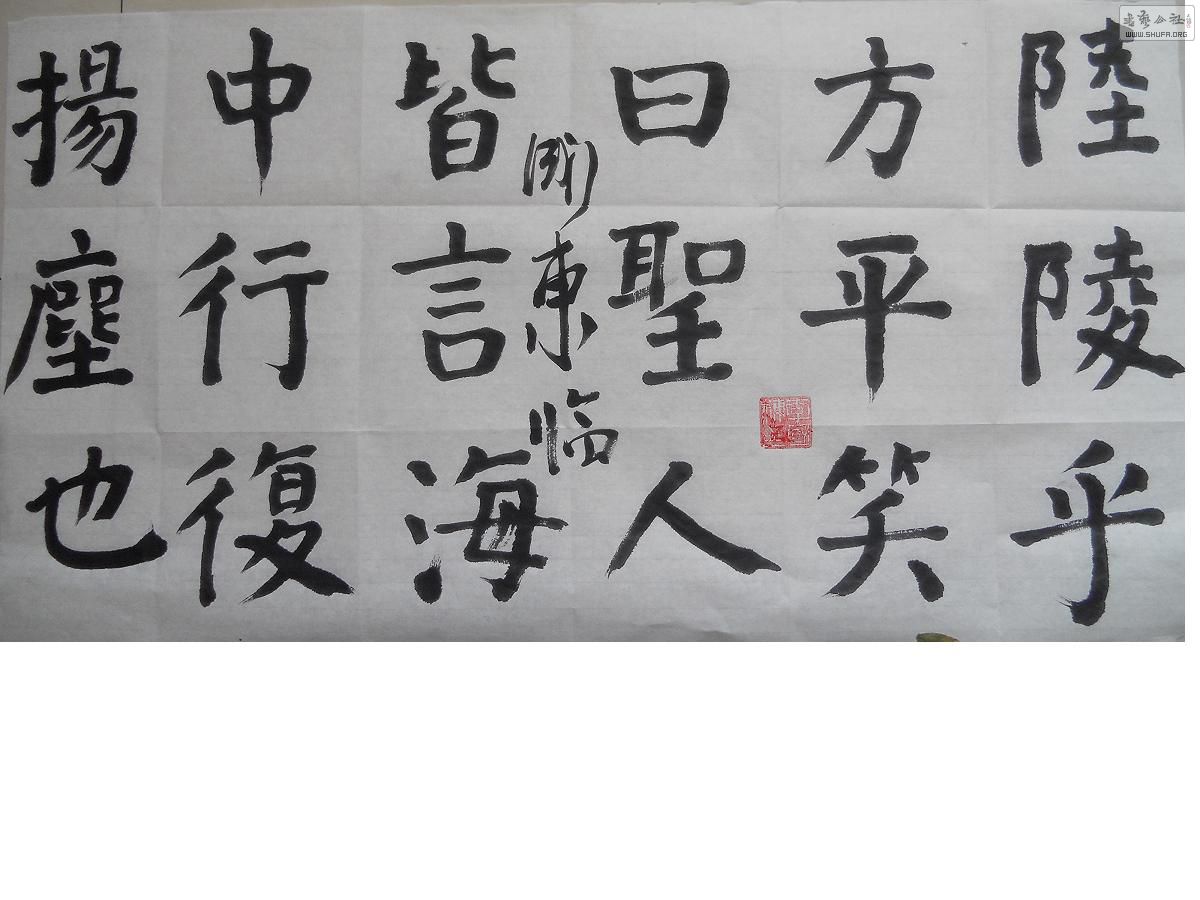 陸陵乎
方平笑
曰聖人
皆言海
中行復
揚塵也
東临
书艺公社
WWW.SHUFA.ORG